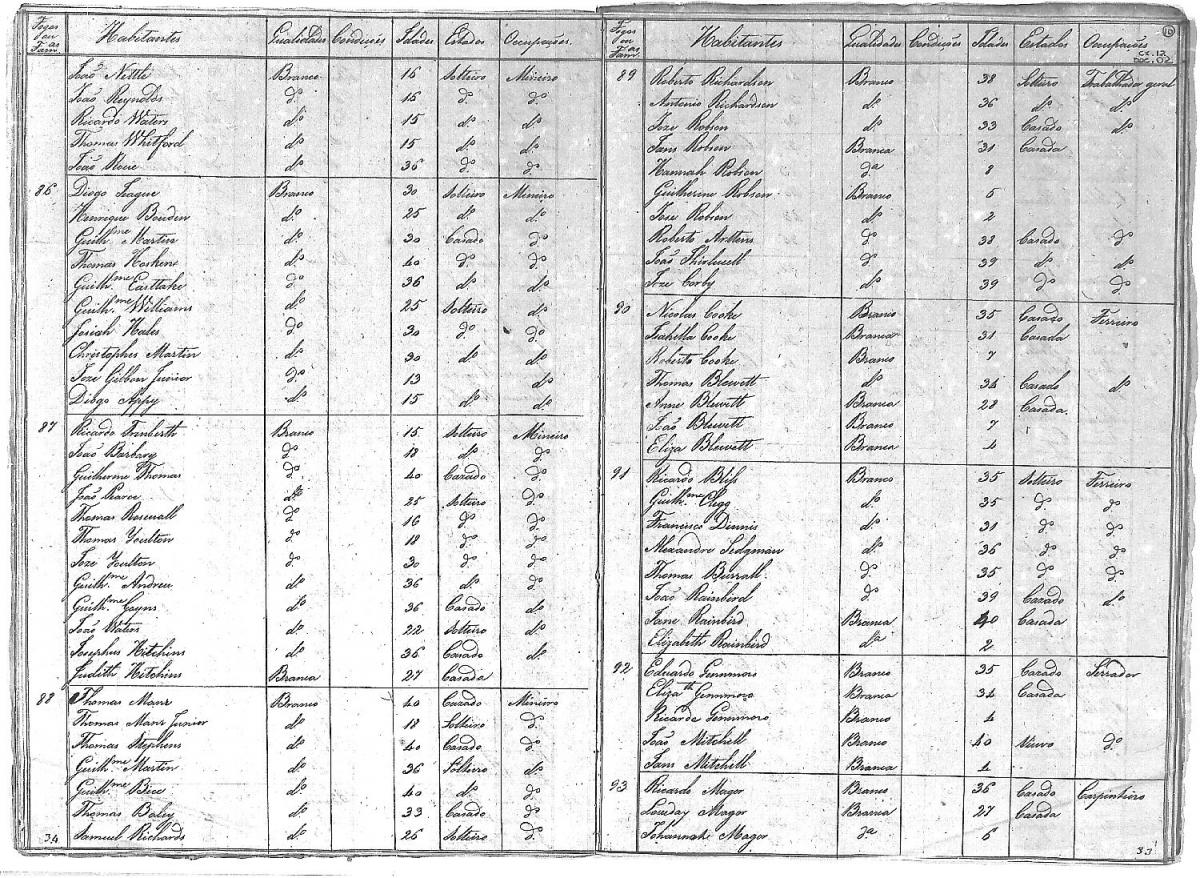 Fogos ou Fam.as Habitantes Qualidades Condições Idades Estados Occupações
João Nettle Branco 16 Solteiro Mineiro
João Reynolds d.o 15 d.o d.o
Ricardo Waters d.o 15 d.o d.o
Thomas Whitford d.o 15 d.o d.o
João Rowe d.o 36 d.o d.o
86 Diogo Teague Branco 30 Solteiro Mineiro
Henrique Bouden d.o 25 d.o d.o
Guilh.me Martin d.o 30 Casado d.o
Thomas Hoskens d.o 40 d.o d.o
Guilh.me Eastlake d.o 36 d.o d.o
Guilh.me Williams d.o 25 Solteiro d.o
Josiah Hales d.o 30 d.o d.o
Christopher Martin d.o 30 d.o d.o
Joze Gilbon Junior d.o 13 d.o
Diogo Appy d.o 15 d.o d.o
87 Ricardo Branco 15 Solteiro Mineiro
João Barbary d.o 18 d.o d.o
Guilherme Thomas d.o 40 Cazado d.o
João Pearce d.o 25 Solteiro d.o
Thomas Rosewall d.o 16 d.o d.o
Thomas Youlton d.o 18 d.o d.o
Joze Youlton d.o 30 d.o d.o
Guilh.me Andrew d.o 36 d.o d.o
Guilh.me d.o 36 Casado d.o
João Waters d.o 22 Solteiro d.o
Josephus Hitchins d.o 36 Casado d.o
Judith Hitchins Branca 27 Casada
88 Thomas Manr Branco 40 Cazado Mineiro
Thomas Manr Junior d.o 18 Solteiro d.o
Thomas Stephens d.o 40 Casado d.o
Guilh.me Martin d.o 36 Solteiro d.o
Guilh.me Bice d.o 40 d.o d.o
Thomas Baley d.o 33 Casado d.o
34 Samuel Richards d.o 26 Solteiro d.o
16
Fogos ou Fam.as Habitantes Qualidades Condições Idades Estados Occupações
CX.12
DOC.02
89 Roberto Richardson Branco 38 Solteiro Trabalhador geral
Antonio Richardson d.o 36 d.o d.o
Joze Robson d.o 33 Casado d.o
Jans Robson Branca 31 Casada
Hannah Robson d.a 8
Guilherme Robson Branco 5
Joze Robson d.o 2
Roberto d.o 38 Casado d.o
João Thirlwell d.o 39 d.o d.o
Joze Corby d.o 39 d.o d.o
90 Nicolas Cooke Branco 35 Cazado Ferreiro
Isabella Cooke Branca 31 Casada
Roberto Cooke Branco 7
Thomas Blewett d.o 34 Casado d.o
Anne Blewett Branca 28 Casada
João Blewett Branco 7
Eliza Blewett Branca 4
91 Ricardo Branco 35 Solteiro Ferreiro
Guilh.me Clegg d.o 35 d.o d.o
Francisco Dennis d.o 31 d.o d.o
Alexandre Sedgman d.o 36 d.o d.o
Thomas Burrall d.o 35 d.o d.o
João Rainbird d.o 39 Cazado d.o
Jane Rainbird Branca 40 Casada
Elizabeth Rainbird d.a 2
92 Eduardo Gemmors Branco 35 Cazado Serrador
Eliza.th Gemmors Branca 34 Casada
Ricardo Gemmoro Branco 4
João Mitchell Branco 40 Viuvo d.o
Jans Mitchell Branca 4
93 Ricardo Magor Branco 36 Casado Carpinteiro
Magor Branca 27 Casada
Johannah Magor d.a 6
33